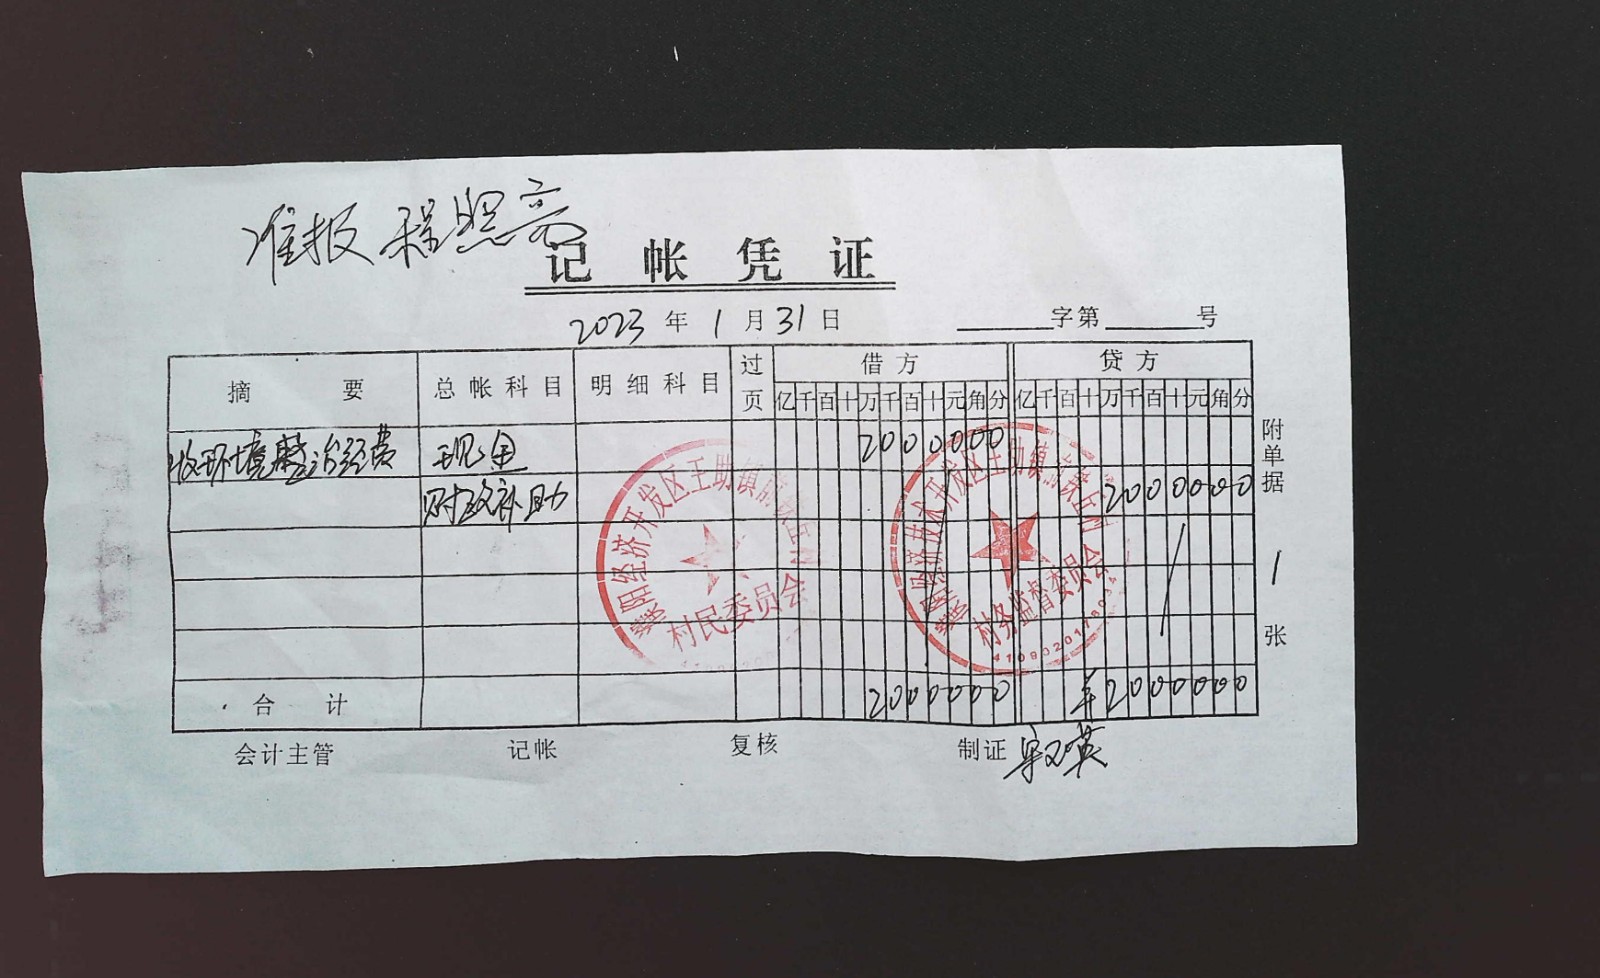 准报 程照亮
记帐凭证
2023年1月31日 字第 号
摘要 总帐科目 明细科目 过页 借方 贷方
亿千百十万千百十元角分 亿千百十万千百十元角分
收环境整治经费 现金 2000000
财政补助 2000000
合计 2000000 ¥2000000
附单据 1 张
会计主管 记帐 复核 制证
濮阳经济开发区王助镇前铁丘村
村民委员会
濮阳经济技术开发区王助镇前铁丘村
村务监督委员会